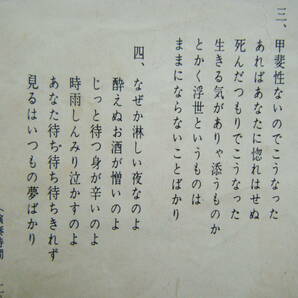 三、甲斐性ないのでこうなった
あればあなたに惚れはせぬ
死んだつもりでこうなった
生きる気がありゃ添うものか
とかく浮世というものは
ままにならないことばかり
四、なぜか淋しい夜なのよ
酔えぬお酒が憎いのよ
じっと待つ身が辛いのよ
時雨しんみり泣かすのよ
あなた待ち待ち待ちきれず
見るはいつもの夢ばかり